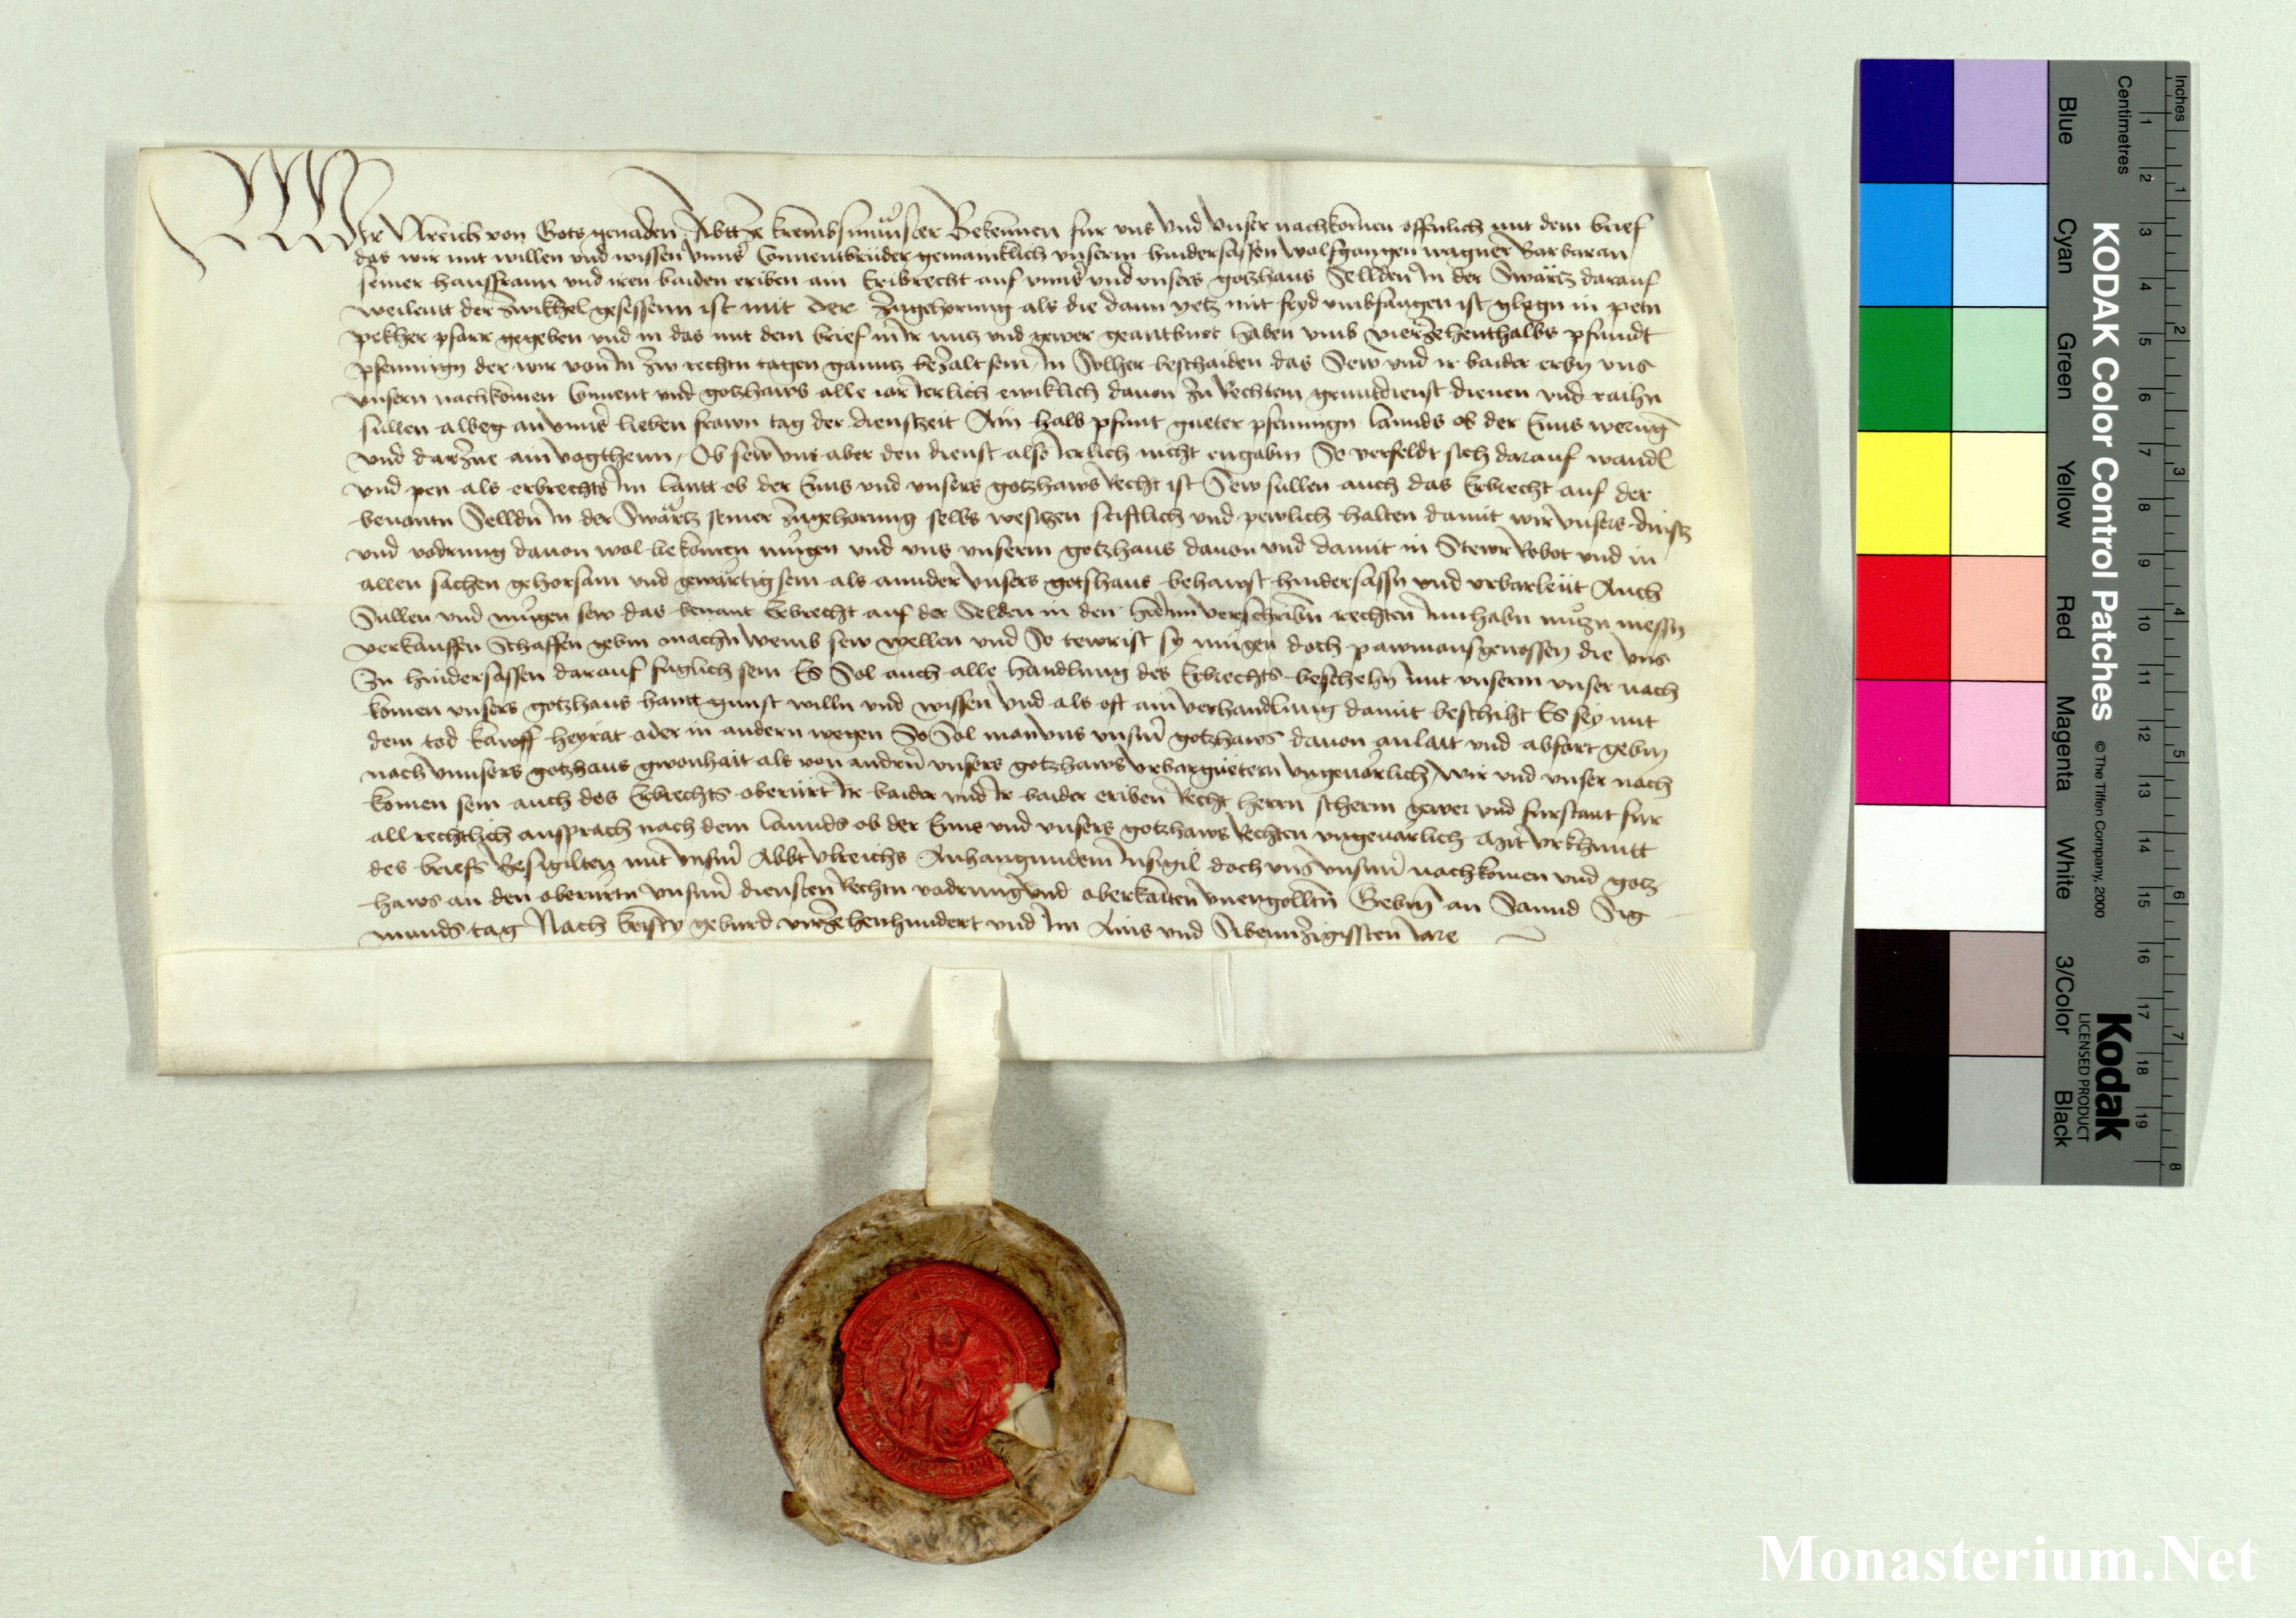 Wir Ulreich von Gots genaden Abbt ze Krembsmünster Bekennen für uns Und Unser nachkomen offenlich mit dem brief
das wir mit willen und wissen unnsr Conventbrüder gemainklich unserm hindersassen Wolfgangen wagner Barbaran
seiner hausfraun und iren baiden eriben ain Eribrecht auf unnsr und unsers gotzhaus Sellden In der Swärtz darauf
weilentt der Zwikhel gesessenn ist mit der Zugehorung als die dann yetz mit fryd umbfangen ist glegn in
pekher pfarr gegeben und in das mit dem brief in Ir nutz und gewer geantburt haben umb vierzehenthalbs pfundt
pfenningn der wir von In zw rechtn tagen ganntz bezalt sein In Solher beschaiden das Sew und ir baider erbn uns
unsern nachkomen Convent und gotzhaws alle iar Ierlich ewiklich davon zu Rechtem gruntdienst dienen und raihn
sullen albeg an unnsr lieben frawn tag der dienstzeit Ain halb pfunt gueter pfenningn lannds ob der Enns werung
und darzue ain vogthenn Ob sew uns aber den dienst also Ierlich nicht engabm So verfeldt sich darauf wandl
und pen als erbrechts Im lantt ob der Enns und unsers gotzhaws Recht ist Sew sullen auch das Erbrecht auf der
benantn Selldn In der Swärtz seiner Zugehorung selbs wesitzen stiftlich und pewlich halten damit wir unsers dinstz
und vodrung davon wol bekomen mügen und uns unserm gotzhaus davon und damit in Stewr Robot und in
allen sachen gehorsam und gewärtig sein als annder unsers gotshaus behawst hindersassn und urbarleüt Auch
Sullen und mügen sew das benant Erbrecht auf der Selden in den verschribn rechten Innhabn nützn niessn
verkauffen Schaffen gebm machn wemb sew wellen und So tewrist sy mügen doch pawmansgenossen die uns
Zu hindersassen darauf füglich sein Es Sol auch alle handlung des Erbrechts beschehn mit unserm unser nach
komen unsers gotzhaus hantt gunst willn und wissen Und als oft ain verhandlung damit beschiht Es sey mit
dem tod kawff heyrat oder in andern wegen So Sol man uns unserm gotzhaws davon anlait und abfart gebm
nach unnsers gotzhaus gwonhait als von andrn unsers gotzhaws urbargüetern ungevärlich Wir und unser nach
komen sein auch des Erbrechts oberürt Ir baider und Ir baider eriben Recht herrn scherm gewer und fürstant für
all rechtlich ansprach nach dem lannds ob der Enns und unsers gotzhaws Rechten ungevarlich Mit urkhuntt
des briefs Besigilten mit unserm Abbt Ulreichs Anhangundem Insigil doch uns unserm nachkomen und gotz
haws an den oberürtn unserm diensten Rechtn vodrung und oberkaiten unengolltn Gebm an Sannd Sig
munds tag Nach kristy geburd vierzehenhundert und Im Ains und Sibennzigissten Iare
KODAK Color Control Patches © The Tiffen Company, 2000
Kodak
LICENSED PRODUCT
Blue Cyan Green Yellow Red Magenta White 3/Color Black
Inches 1 2 3 4 5 6 7 8
Centimetres 1 2 3 4 5 6 7 8 9 10 11 12 13 14 15 16 17 18 19
Monasterium.Net